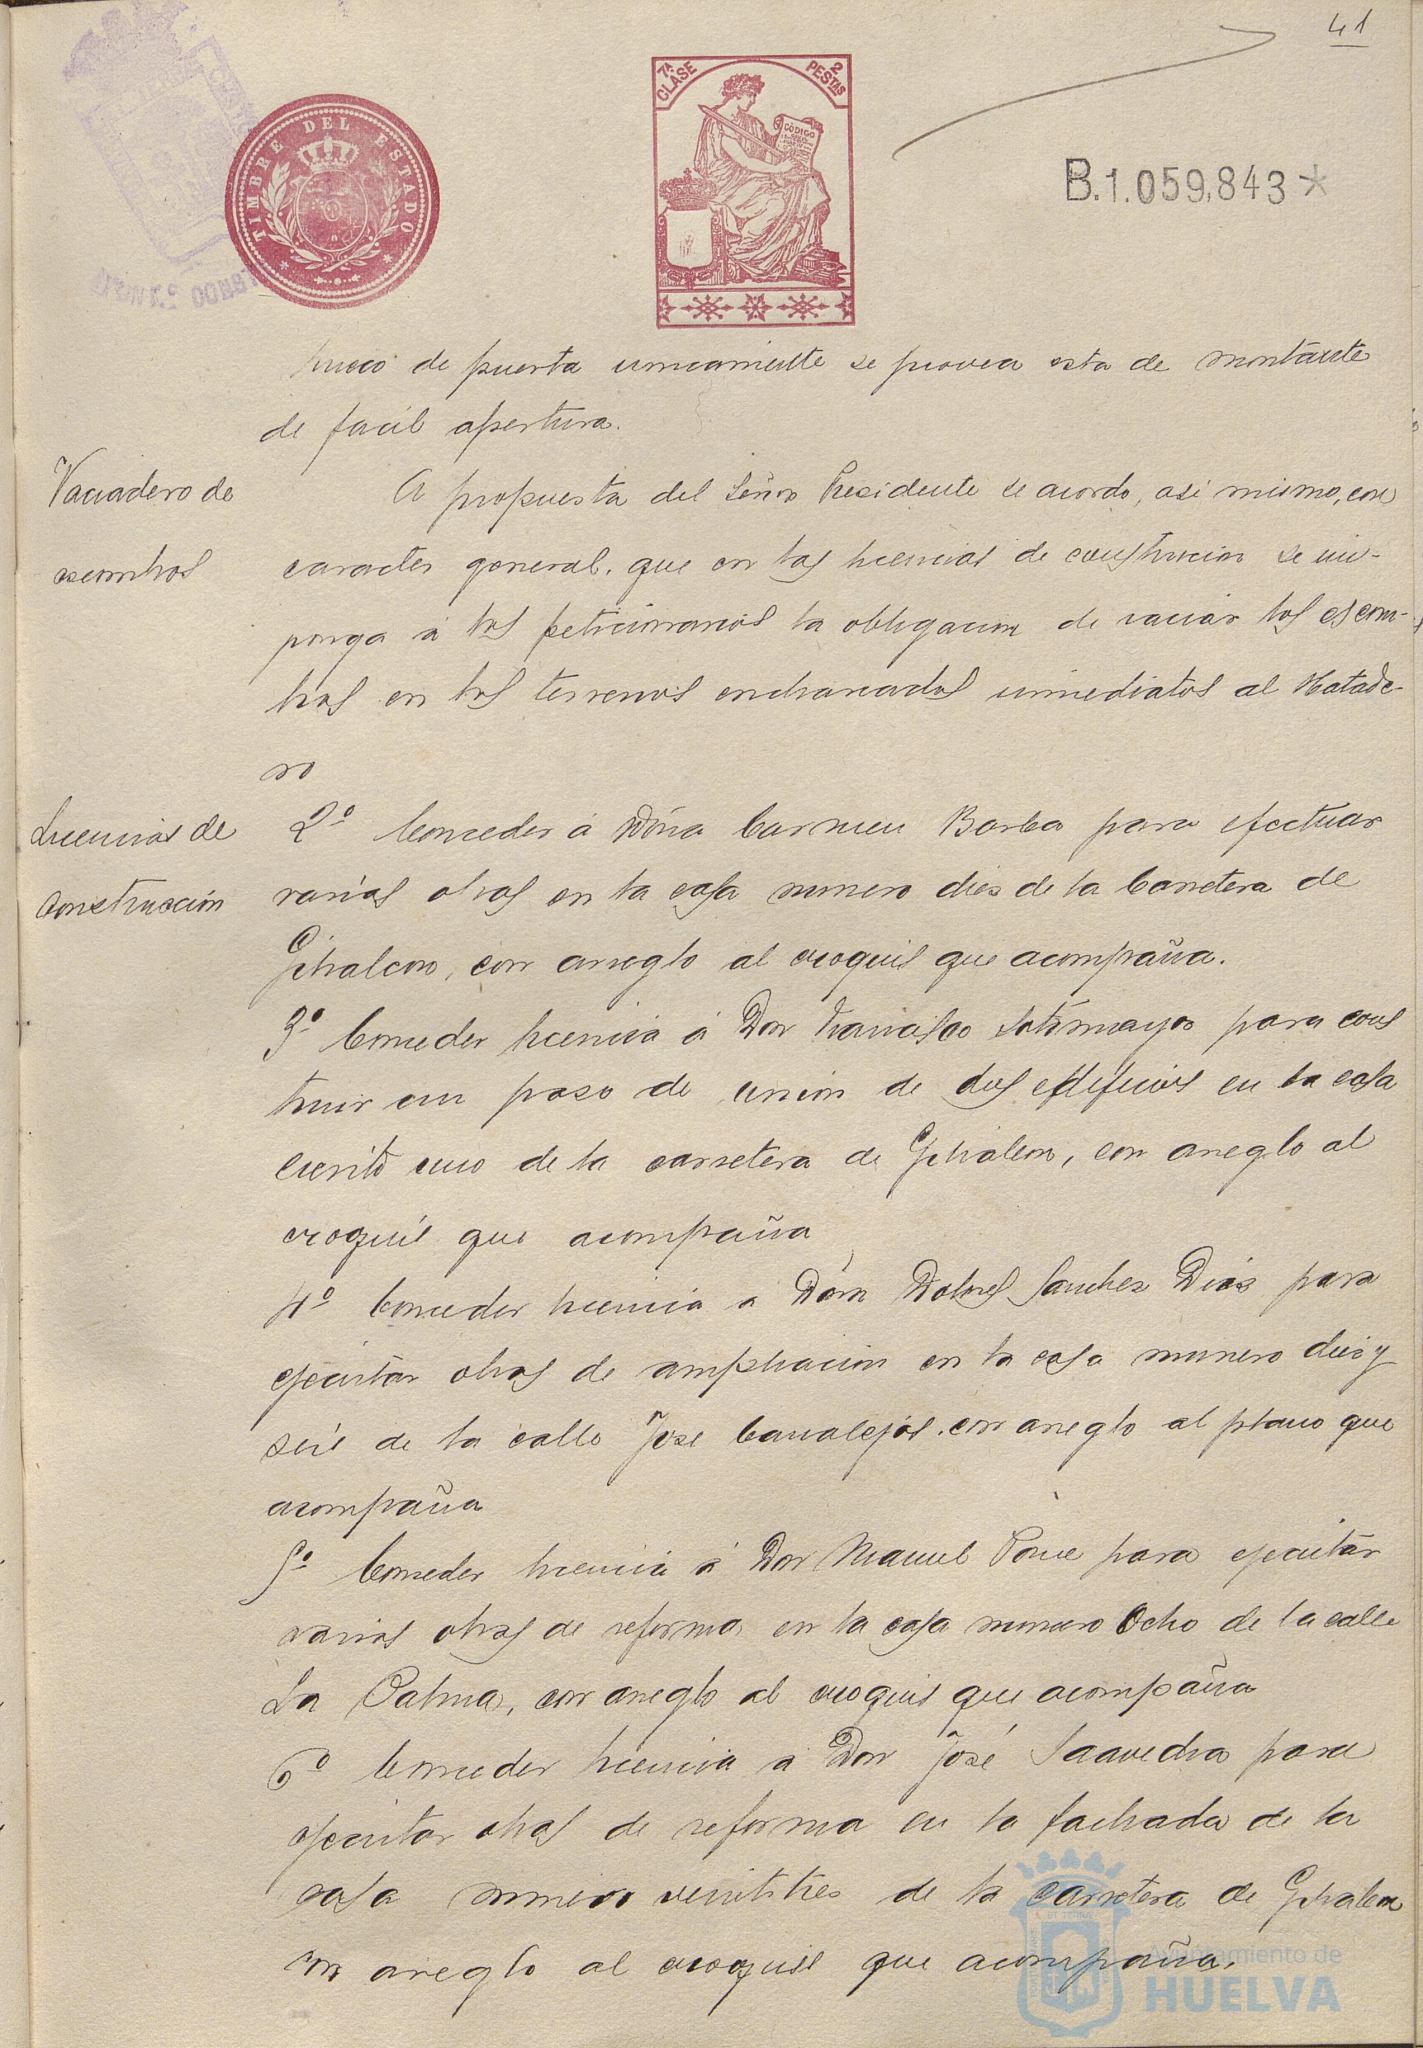 41
TIMBRE DEL ESTADO
7ª CLASE
2 PESTAS
CODIGO
B.1.059,843*
hueco de puerta unicamente se provea esta de montante
de facil apertura.
Vaciadero de
escombros
A propuesta del Señor Presidente se acordo, asi mismo, con
caracter general, que en las licencias de construcion se im-
ponga á los peticionarios la obligacion de vaciar los escom-
bros en los terrenos encharcados inmediatos al Matade-
ro
Licencias de
construcción
2º Conceder á Doña Carmen Borba para efectuar
varias obras en la casa numero diez de la Carretera de
Gibraleon, con arreglo al croquis que acompaña.
3º Conceder licencia á Don Francisco Sotomayor para cons
truir un paso de union de dos edificios en la casa
ciento uno de la carretera de Gibraleon, con arreglo al
croquis que acompaña
4º Conceder licencia a Doña Dolores Sanchez Dias para
ejecutar obras de ampliacion en la casa numero diez y
seis de la calle Jose Canalejas, con arreglo al plano que
acompaña
5º Conceder licencia á Don Manuel Ponce para ejecutar
varias obras de reforma en la casa numero Ocho de la calle
La Palma, con arreglo al croquis que acompaña
6º Conceder licencia a Don José Saavedra para
ejecutar obras de reforma en la fachada de la
casa numero veintitres de la carretera de Gibraleon
con arreglo al croquis que acompaña.
Ayuntamiento de
HUELVA